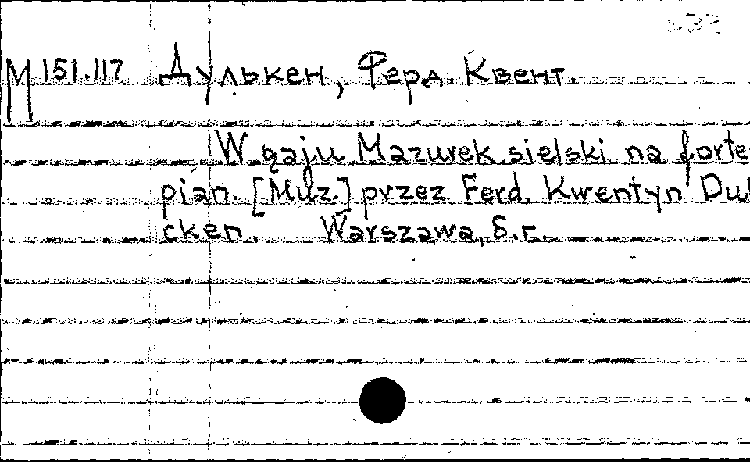 M 151.117 Дулькен, Ферд. Квент.
W gaju Mazurek sielski na forte
pian. [Muz.] przez Ferd. Kwentyn Dul
cken. Warszawa, б.г.